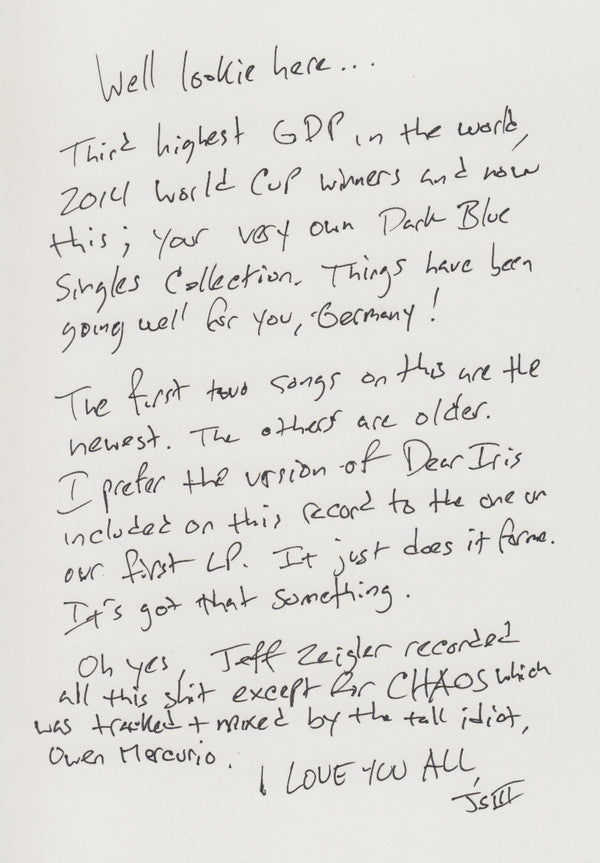 Well lookie here...
Third highest GDP in the world,
2014 World Cup winners and now
this; your very own Dark Blue
Singles Collection. Things have been
going well for you, Germany!
The first two songs on this are the
newest. The others are older.
I prefer the version of Dear Iris
included on this record to the one on
our first LP. It just does it for me.
It's got that something.
Oh yes, Jeff Zeigler recorded
all this shit except for CHAOS which
was tracked + mixed by the tall idiot,
Owen Mercurio.
I LOVE YOU ALL,
JSIII